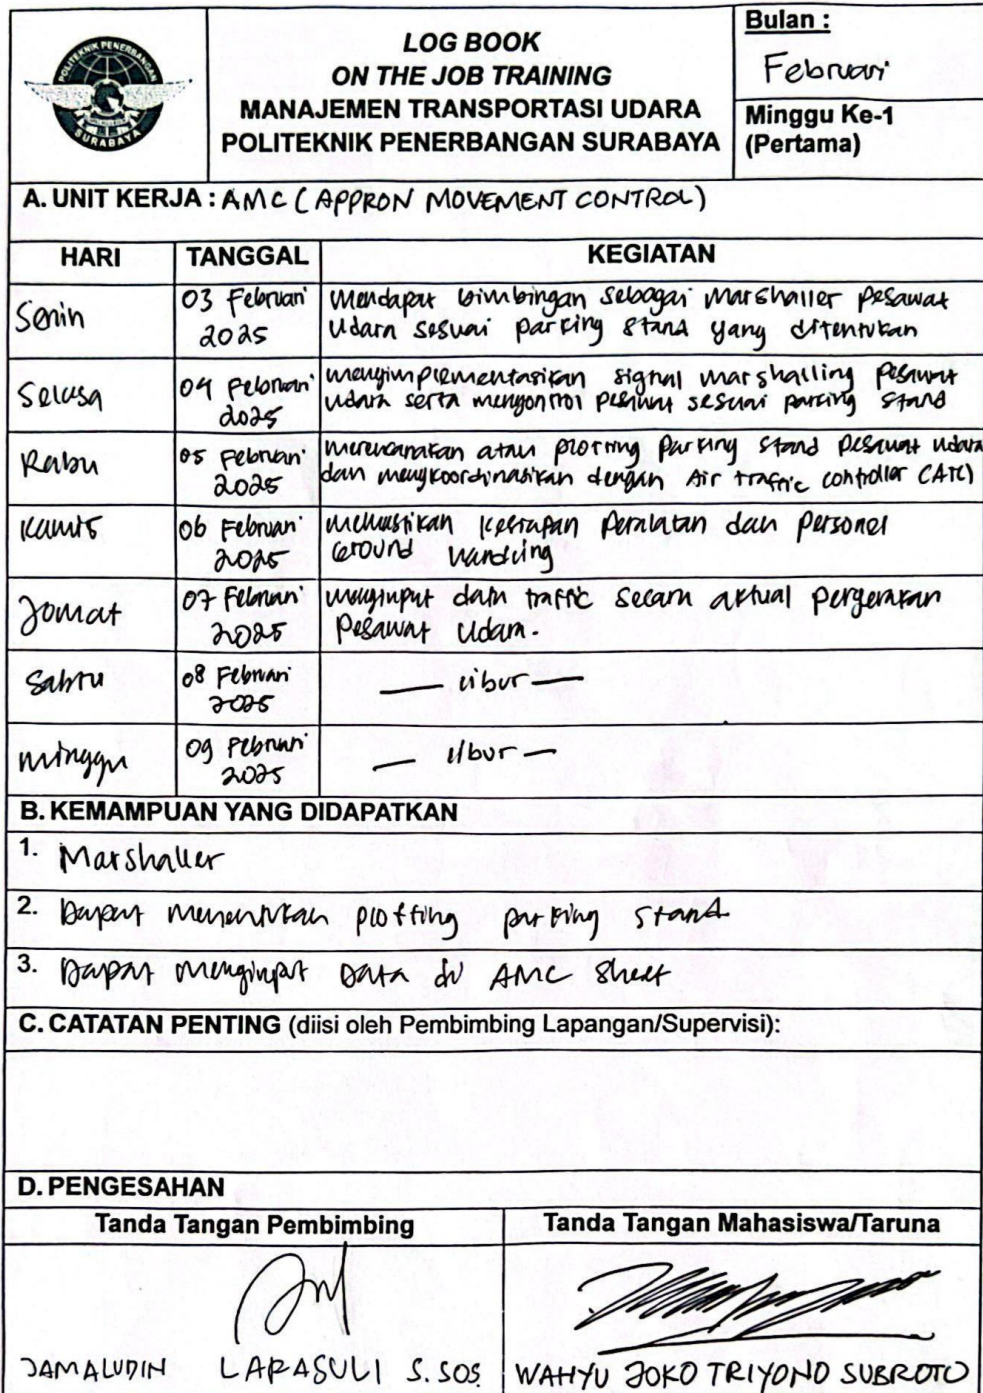 POLITEKNIK PENERBANGAN
SURABAYA
LOG BOOK
ON THE JOB TRAINING
MANAJEMEN TRANSPORTASI UDARA
POLITEKNIK PENERBANGAN SURABAYA
Bulan :
Februari
Minggu Ke-1
(Pertama)
A. UNIT KERJA : AMC ( APPRON MOVEMENT CONTROL )
HARI TANGGAL KEGIATAN
Senin
03 Februari
2025
Mendapat bimbingan sebagai Marshaller pesawat
udara sesuai parking stand yang ditentukan
Selasa
04 Februari
2025
mengimplementasikan signal marshalling pesawat
udara serta mengontrol pesawat sesuai parking stand
Rabu
05 Februari
2025
merencanakan atau plotting parking stand pesawat udara
dan mengkoordinasikan dengan Air traffic controller (ATC)
Kamis
06 Februari
2025
memastikan kesiapan peralatan dan personel
Ground handling
Jomat
07 Februari
2025
menginput data traffic secara aktual pergerakan
pesawat udara.
Sabtu
08 Februari
2025
— libur —
minggu
09 Februari
2025
— libur —
B. KEMAMPUAN YANG DIDAPATKAN
1. Marshaller
2. Dapat menentukan plotting parking stand
3. Dapat menginput Data di AMC Sheet
C. CATATAN PENTING (diisi oleh Pembimbing Lapangan/Supervisi):
D. PENGESAHAN
Tanda Tangan Pembimbing
Tanda Tangan Mahasiswa/Taruna
JAMALUDIN LAPASULI S.SOS
WAHYU JOKO TRIYONO SUBROTO